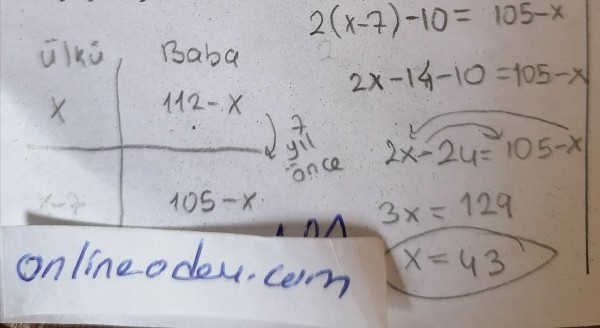 2(x-7)-10= 105-x
Ülkü Baba
2x-14-10=105-x
x 112-x
7
yıl
önce
2x-24= 105-x
x-7 105-x
3x = 129
x = 43
onlineodev.com